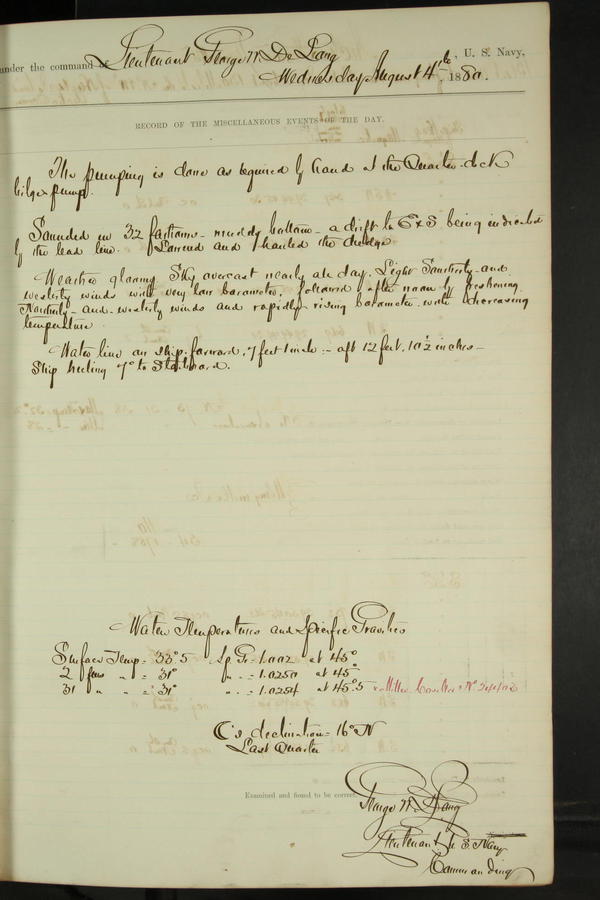 under the command of Lieutenant George W. De Long, U. S. Navy,
Wednesday August 4th, 1880.
RECORD OF THE MISCELLANEOUS EVENTS OF THE DAY.
The pumping is done as required by hand at the Quarter-deck
bilge pump.
Sounded in 32 fathoms - muddy bottom - a drift to ExS being indicated
by the lead line. Lowered and hauled the dredge
Weather gloomy. Sky overcast nearly all day. Light Southerly and
westerly winds with very low barometer; followed after noon by freshening
Northerly and westerly winds and rapidly rising barometer with decreasing
temperature.
Water line on ship: forward, 7 feet 1 inch :- aft 12 feet, 10½ inches -
Ship heeling 7° to Starboard.
Water Temperatures and Specific Gravities
Surface Temp = 33°.5 Sp Gr = 1.002 at 45°
2 fms " " = 31° " " = 1.0250 at 45°
31 " " " = 31° " " = 1.0254 at 45°.5 Miller Casella No
C's declination = 16° N
Last Quarter
Examined and found to be correct.
George W. De Long
Lieutenant U. S. Navy
Commanding